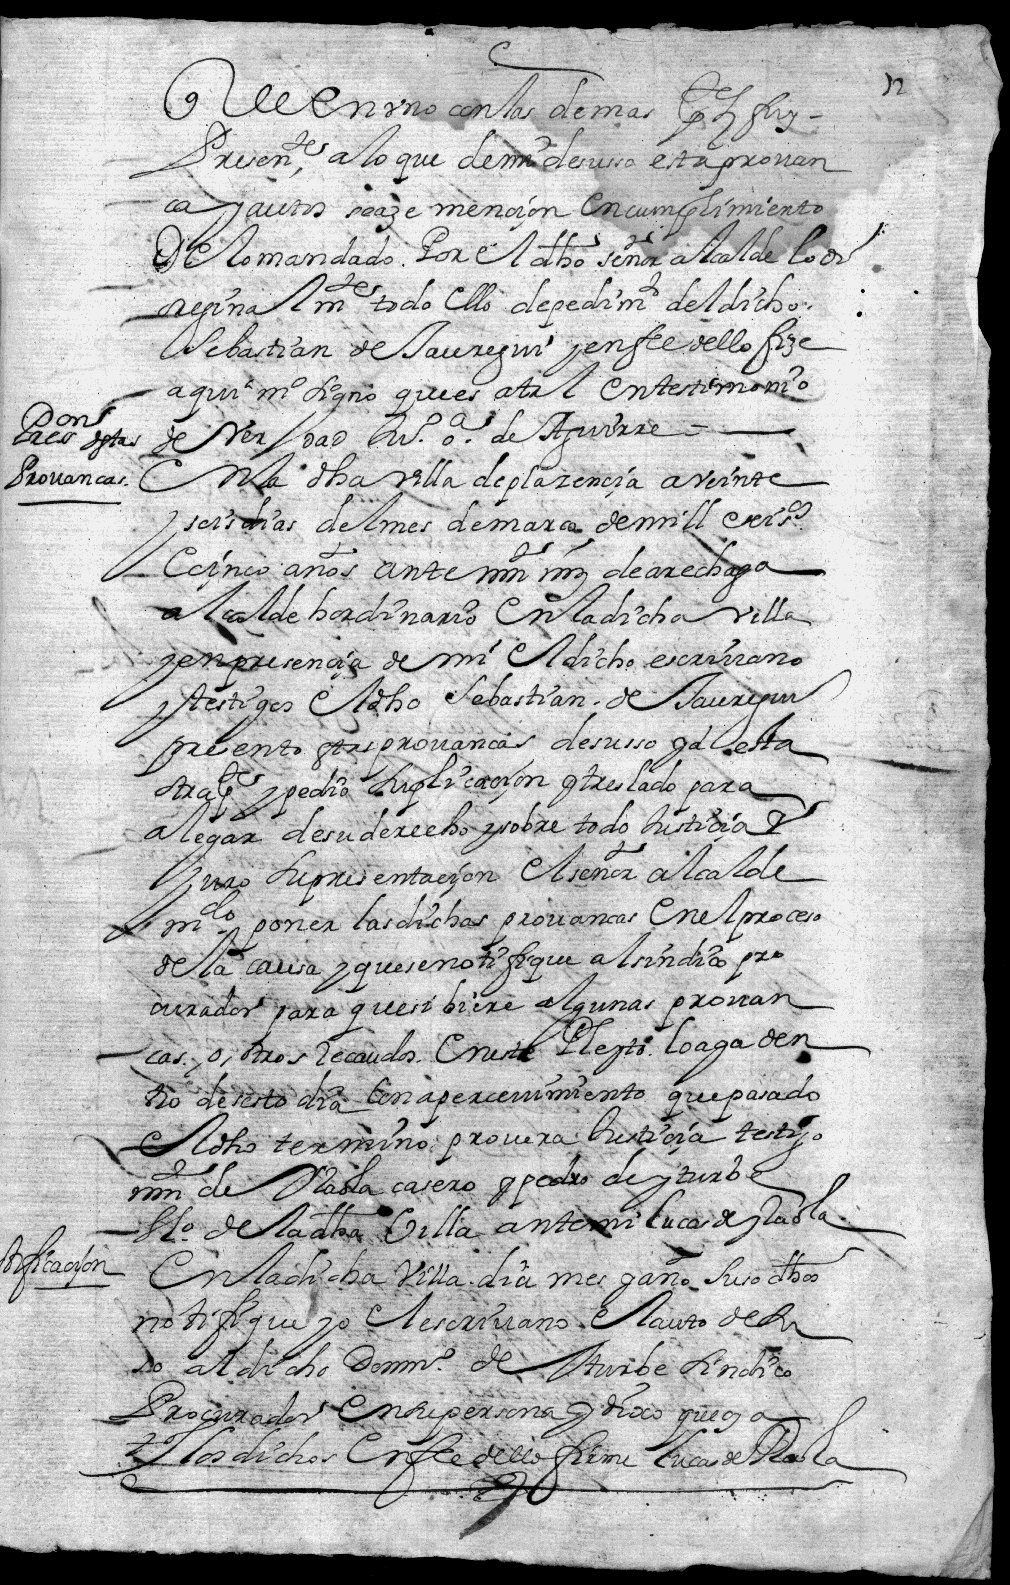 en vno con las demas
Presentes, a lo que de mi desusso esta prouan
ca y autos se aze mencion en cumplimiento
De lo mandado. Por el dho señor alcalde lo ori
reginalmtes todo ello de pedimto del dicho
Sebastian de Jauregui y en fee dello fize
aqui mi signo que es a tal en testimonio
de Ver dad Ju. o. de Aguirre
Pon
tres destas
Prouancas.
En la dha villa de plazencia a veinte
y seis dias del mes de março de mill e seiss
E cinco años ante mrn mrz de arechaga
alcalde hordinario En la dicha villa
y en presencia de mi El dicho escriuano
y testigos El dho Sebastian de Jauregui
presento estas prouancas desusso y de esta
otra pte y pedio Justificacion y treslado para
alegar de su derecho y sobre todo Justicia y
Juro Su presentacion El señor alcalde
mdo poner las dichas prouancas En el proceso
de la causa y que se notifique al sindico pro
curador para que si biere algunas prouan
cas. o, otros Recaudos. En este Pleyto. lo aga den
tro de sesto dia Con aperceuimiento que pasado
El dho termino prouera Justicia testigo
mrn de Olaola casero y pedro de yturbe
Vzo. de la dha Villa ante mi lucas de Olaola
tificacion
En la dicha Villa. dia mes y año Suso dhos
notifique yo El escriuano. El auto de Su
so al dicho Domin. de Yturbe Sindico
Procurador En Su persona y dixo que oya
to. los dichos En fee dello firme lucas de Olaola